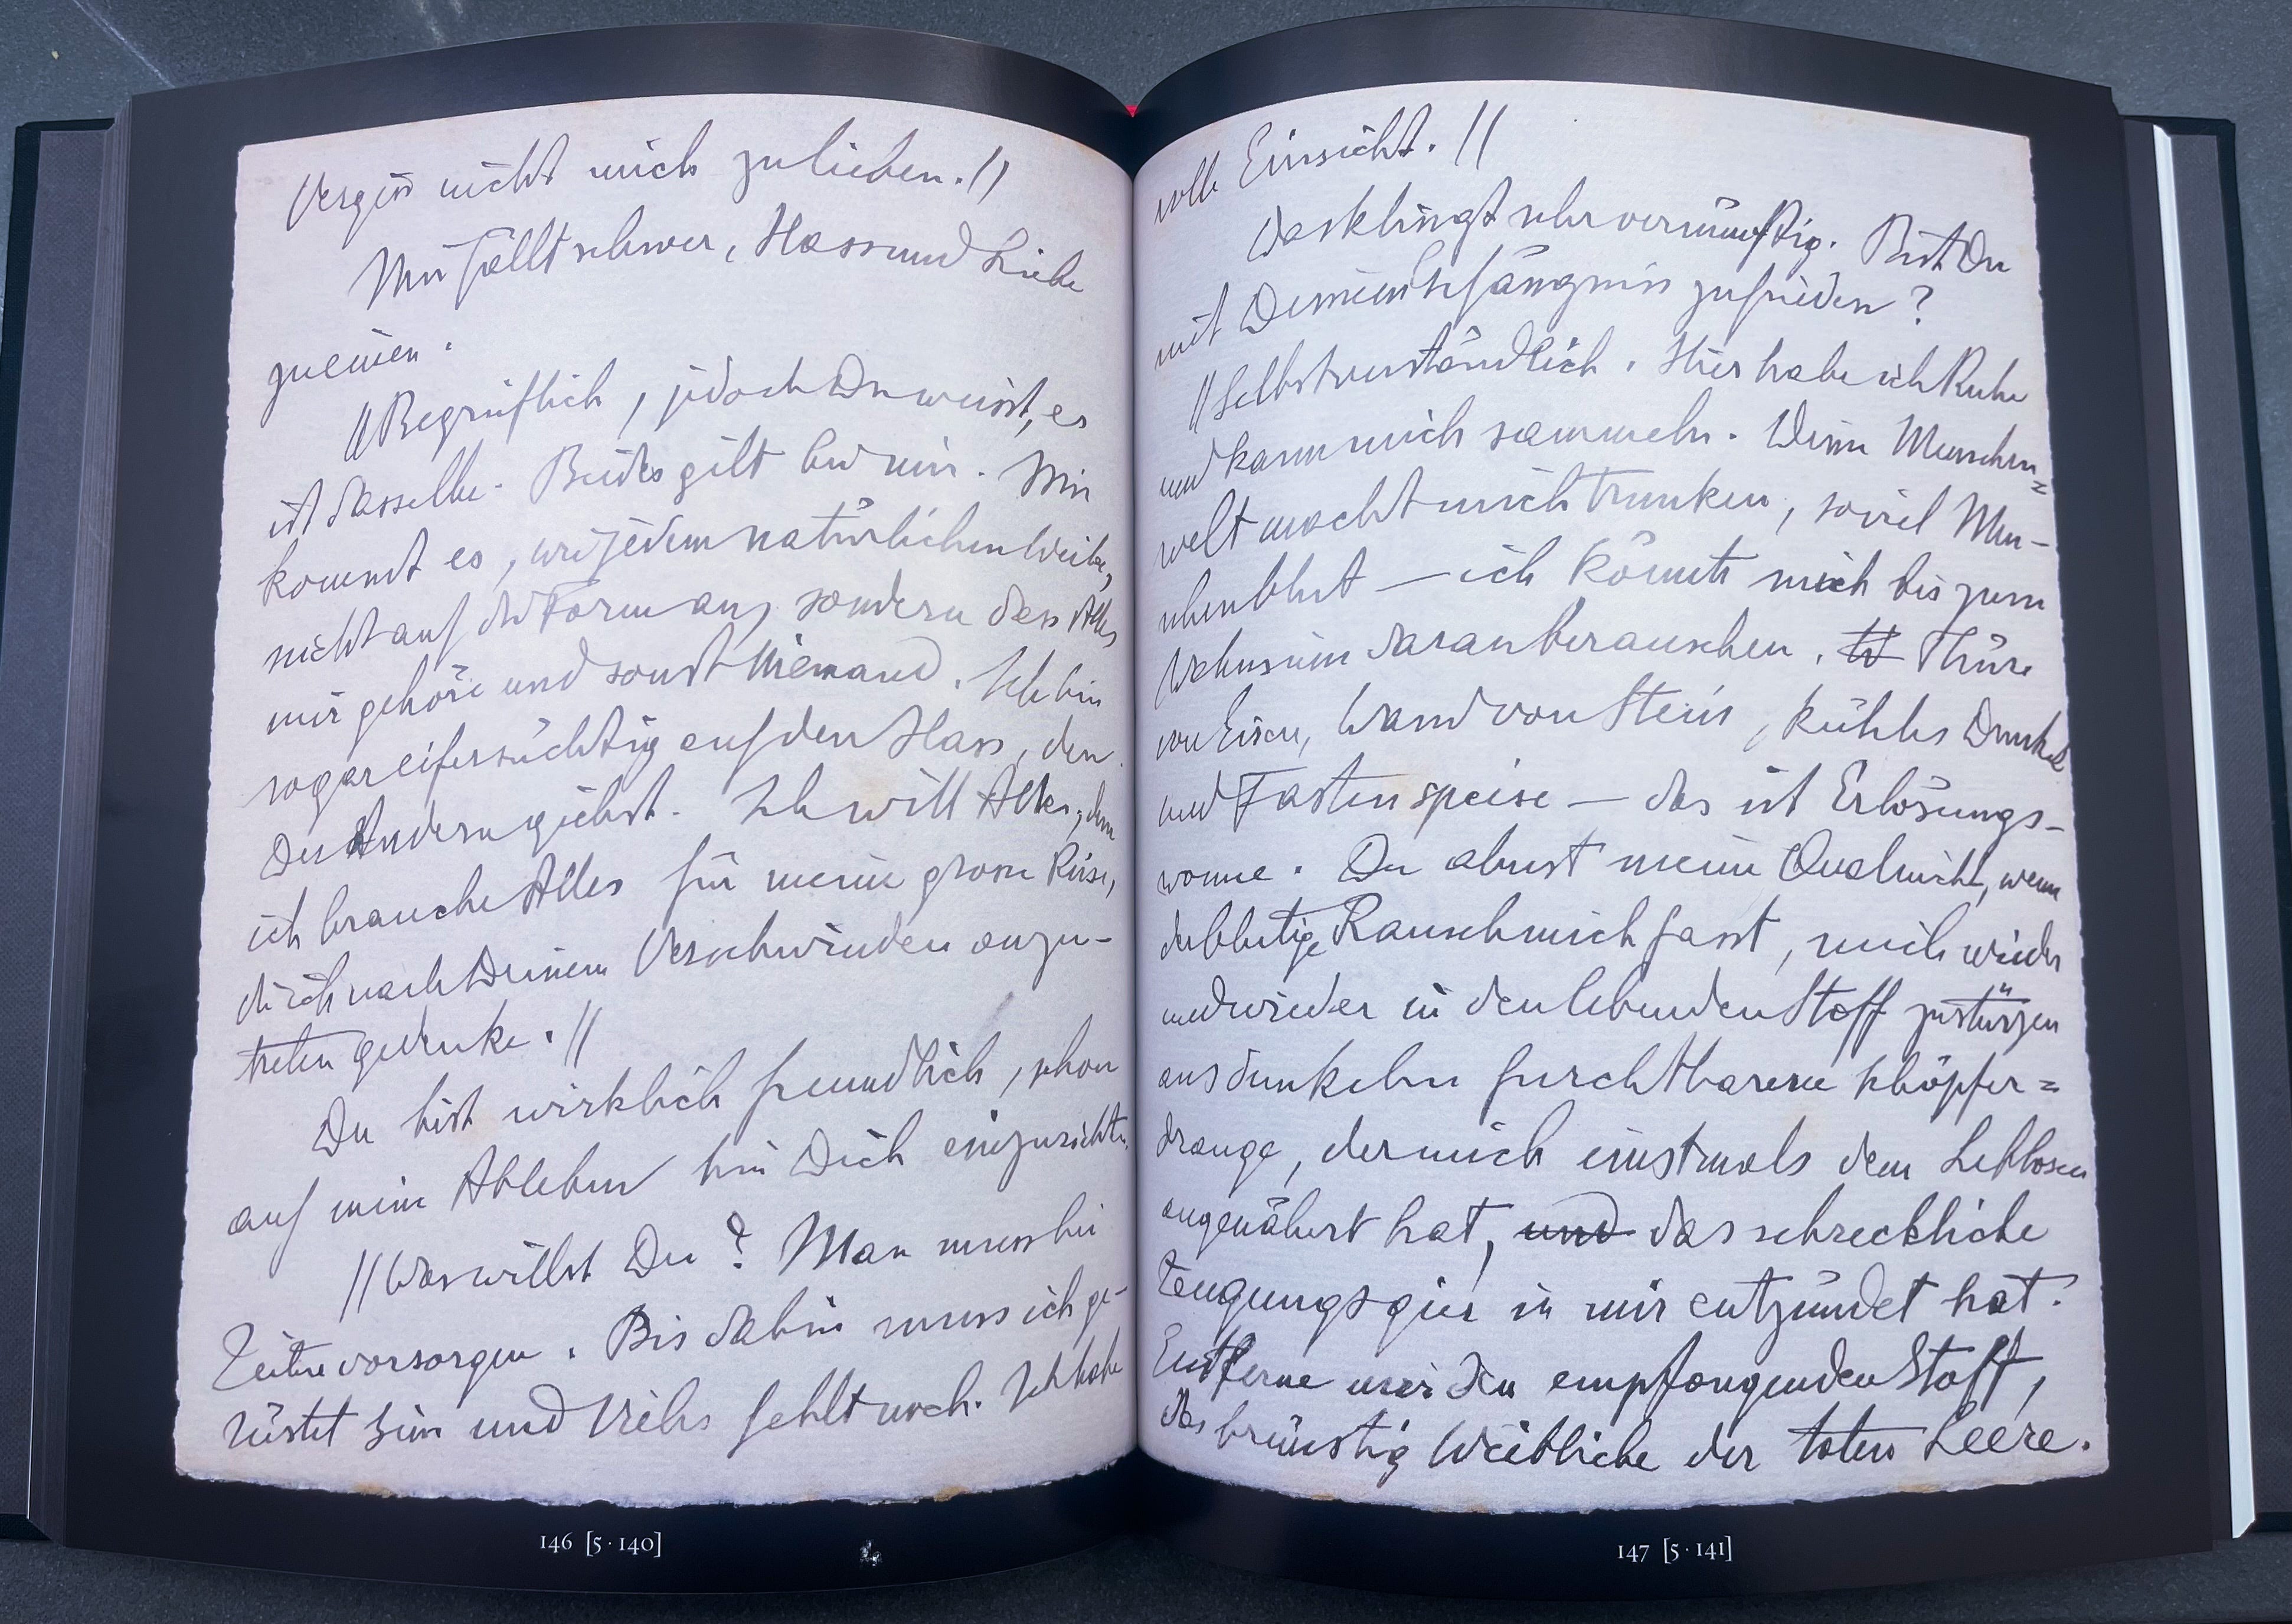 Vergiss nicht mich zu lieben. //
Mir fällt schwer, Hass und Liebe
zu einen.
// Begreiflich, jedoch Du weisst, es
ist dasselbe. Beides gilt bei mir. Mir
kommt es, wie jedem natürlichen Weibe,
nicht auf die Form an, sondern dass Alles
mir gehöre und sonst Niemand. Ich bin
sogar eifersüchtig auf den Hass, den
Du Andern giebst. Ich will Alles, denn
ich brauche Alles für meine grosse Reise,
die ich nach Deinem Verschwinden anzu-
treten gedenke. //
Du bist wirklich freundlich, schon
auf mein Ableben hin Dich einzurichten.
// Was willst Du? Man muss bei
Zeiten vorsorgen. Bis dahin muss ich ge-
rüstet sein und Vieles fehlt noch. Ich habe
146 [5 · 140]
volle Einsicht. //
Das klingt sehr vernünftig. Bist Du
mit Deinem Gefängniss zufrieden?
// Selbstverständlich. Hier habe ich Ruhe
und kann mich sammeln. Deine Menschen=
welt macht mich trunken, soviel Men-
schenblut — ich könnte mich bis zum
Wahnsinn daran berauschen. Thüre
von Eisen, Wand von Stein, kühles Dunkel
und Fastenspeise — das ist Erlösungs-
wonne. Du ahnst meine Qual nicht, wenn
der blutige Rausch mich fasst, mich wieder
und wieder in den lebenden Stoff zu stürzen
aus dunkelm furchtbarem Schöpfer=
drange, der mich einstmals dem Leblosen
angenähert hat, und das schreckliche
Zeugungsgier in mir entzündet hat.
Entferne mir den empfangenden Stoff,
das brünstig Weibliche der toten Leere.
147 [5 · 141]